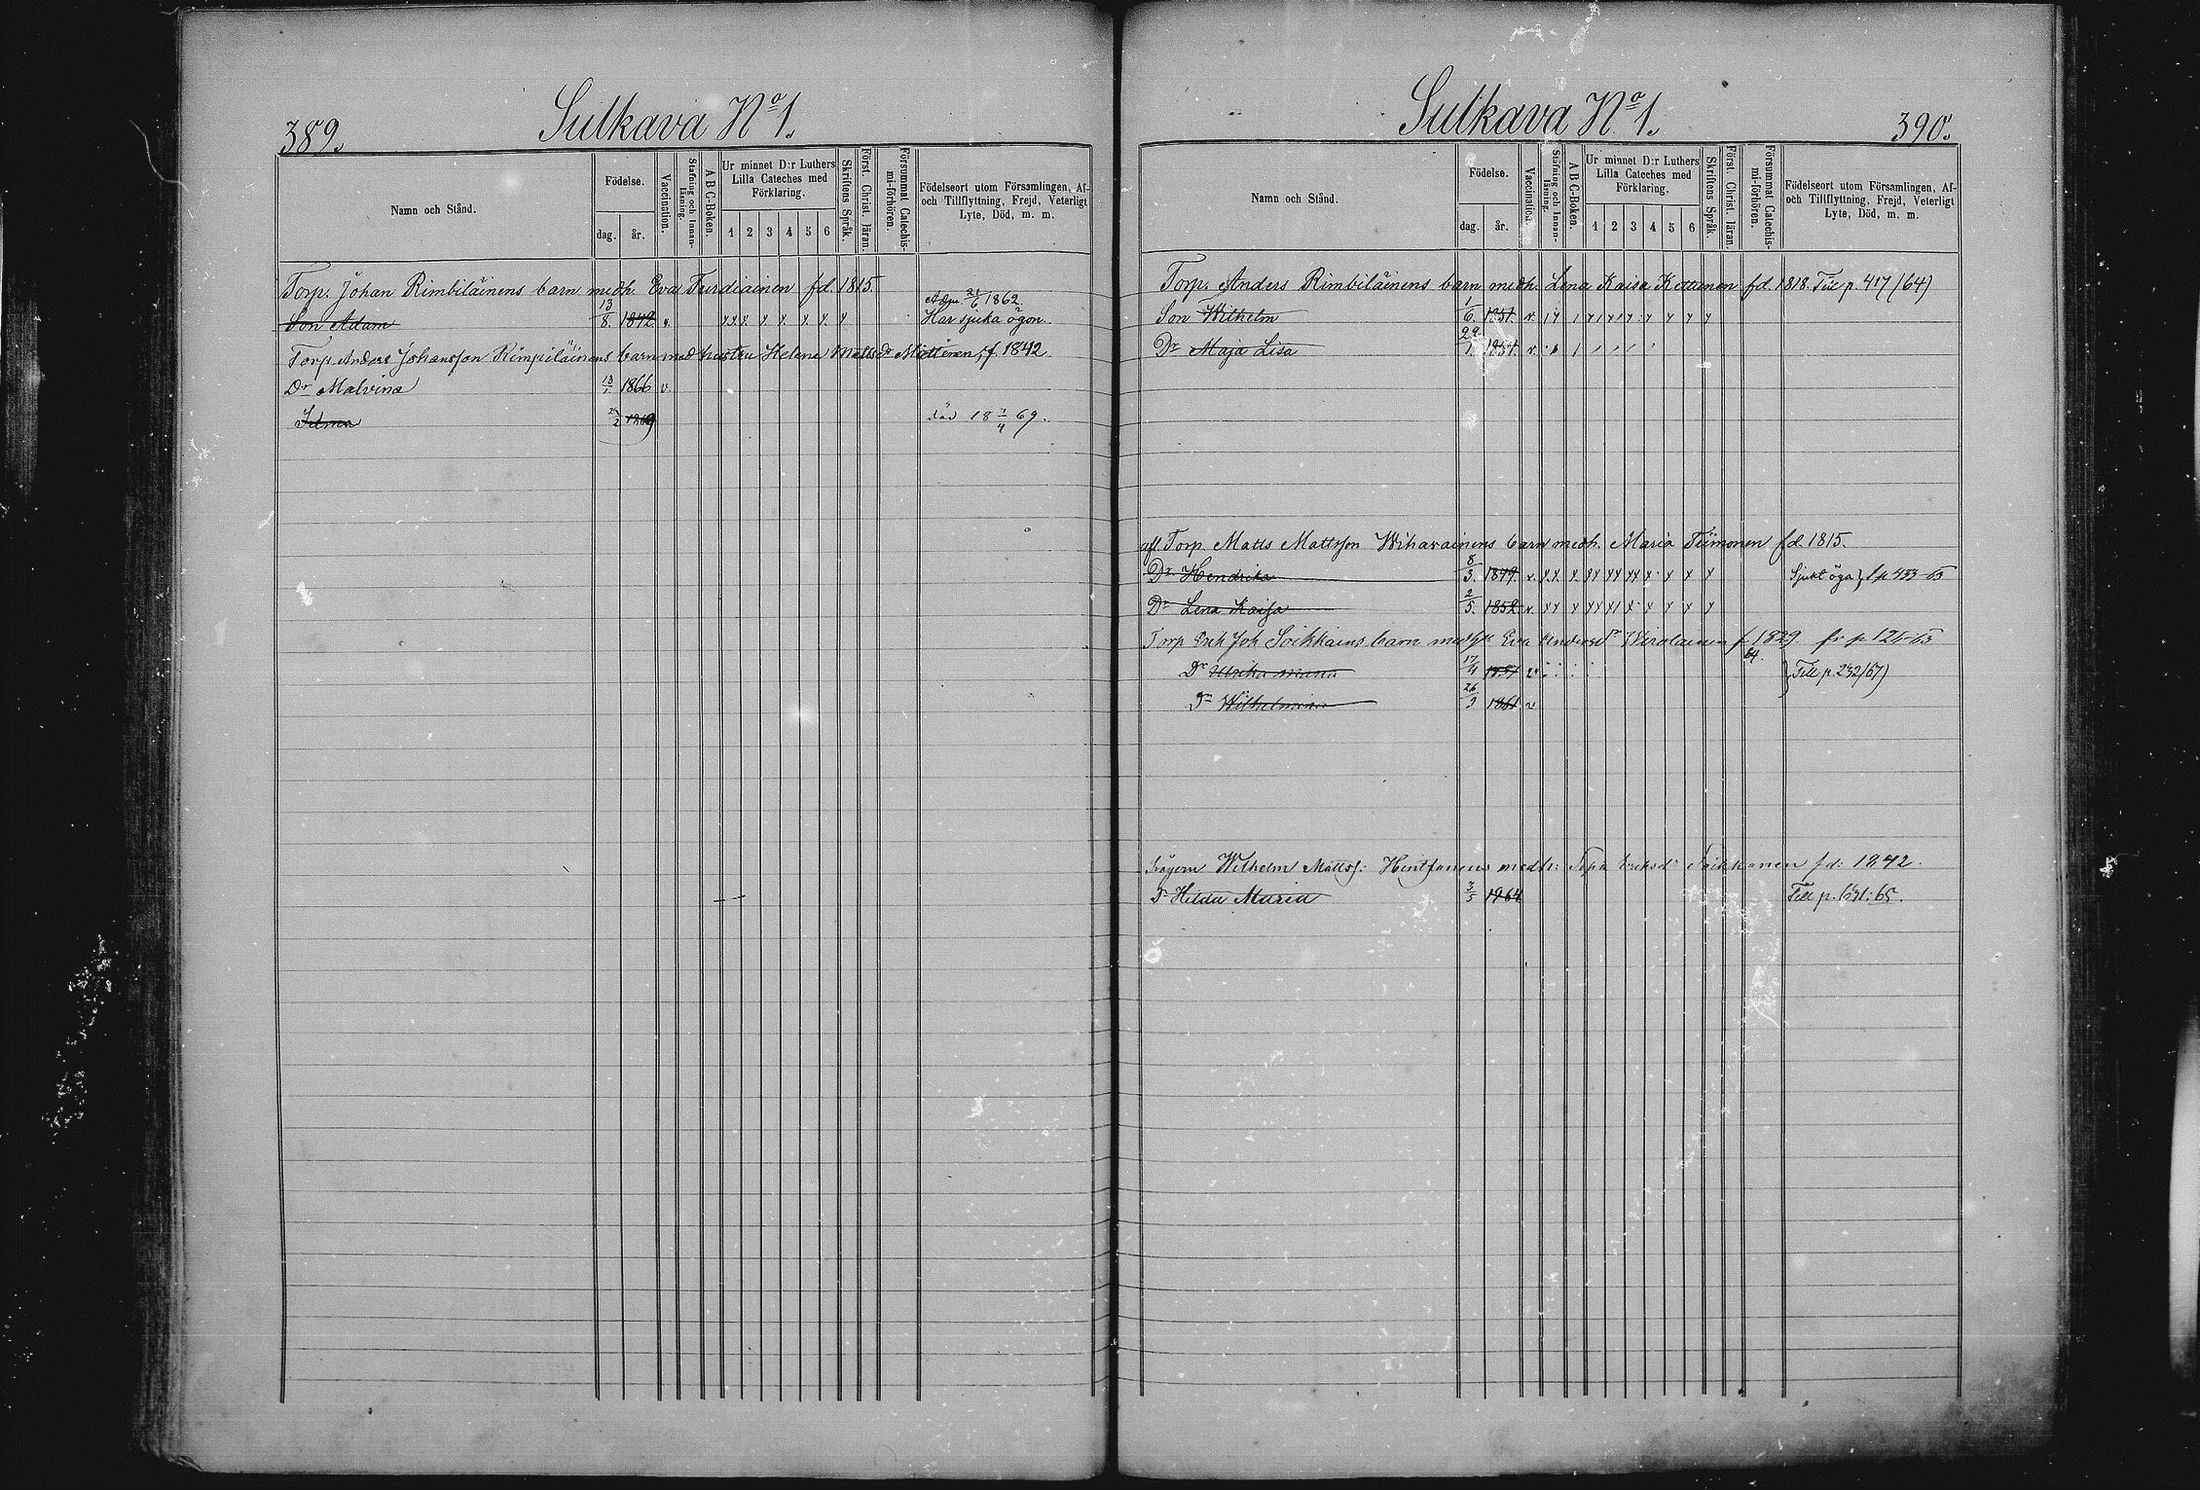 389.
Sulkava No 1.
Namn och Stånd.
Födelse.
dag.
år.
Vaccination.
Stafning och Innan-läsning.
A B C-Boken.
Ur minnet D:r Luthers
Lilla Cateches med
Förklaring.
1 2 3 4 5 6
Skriftens Språk.
Först. Christ. läran.
Försummat Catechis-mi-förhören.
Födelseort utom Församlingen, Af-
och Tillflyttning, Frejd, Veterligt
Lyte, Död, m. m.
Torp. Johan Rimbiläinens barn medh. Eva Turdiainen fd. 1815.
Son Adam 13/8. 1842. v. Adm. 21/6 1862. Har sjuka ögon.
Torp. Anders Johansson Rimpiläinens barn med hustru Helena Matts dr Miettinen, f. 1842
Dr Malvina 1866 v.
Ilma 2 1869 död 18 7/4 69.
Sulkava No 1.
390.
Namn och Stånd.
Födelse.
dag.
år.
Vaccination.
Stafning och Innan-läsning.
A B C-Boken.
Ur minnet D:r Luthers
Lilla Cateches med
Förklaring.
1 2 3 4 5 6
Skriftens Språk.
Först. Christ. läran.
Försummat Catechis-mi-förhören.
Födelseort utom Församlingen, Af-
och Tillflyttning, Frejd, Veterligt
Lyte, Död, m. m.
Torp. Anders Rimbiläinens barn medh. Lena Kaisa Kettunen fd. 1818. Till p. 417 (64)
Son Wilhelm 1/6. 1851. v.
Dr Maja Lisa 29/1. 1854. v.
afl. Torp. Matts Mattsson Wihavainens barn medh. Maria Tiimonen fd. 1815.
Dr Hendrika 8/3. 1849. v. Sjukt öga } t p 433-65
Dr Lena Kaisa 2/5. 1852 v.
Torp Erik Joh Soikkains barn med hu Eva Andersdr Wirolainen f 1829 fr p 126-63
Dr Ulrika Maria 17/4 1857 v } Till p. 232/67)
Dr Wilhelmina 26/9 1861 v
Wilhelm Mattss: medh: Sofia Eriksdr Soikkanen fd: 1842.
Dr Hilda Maria 3/5 1864 Till p. 631: 65.